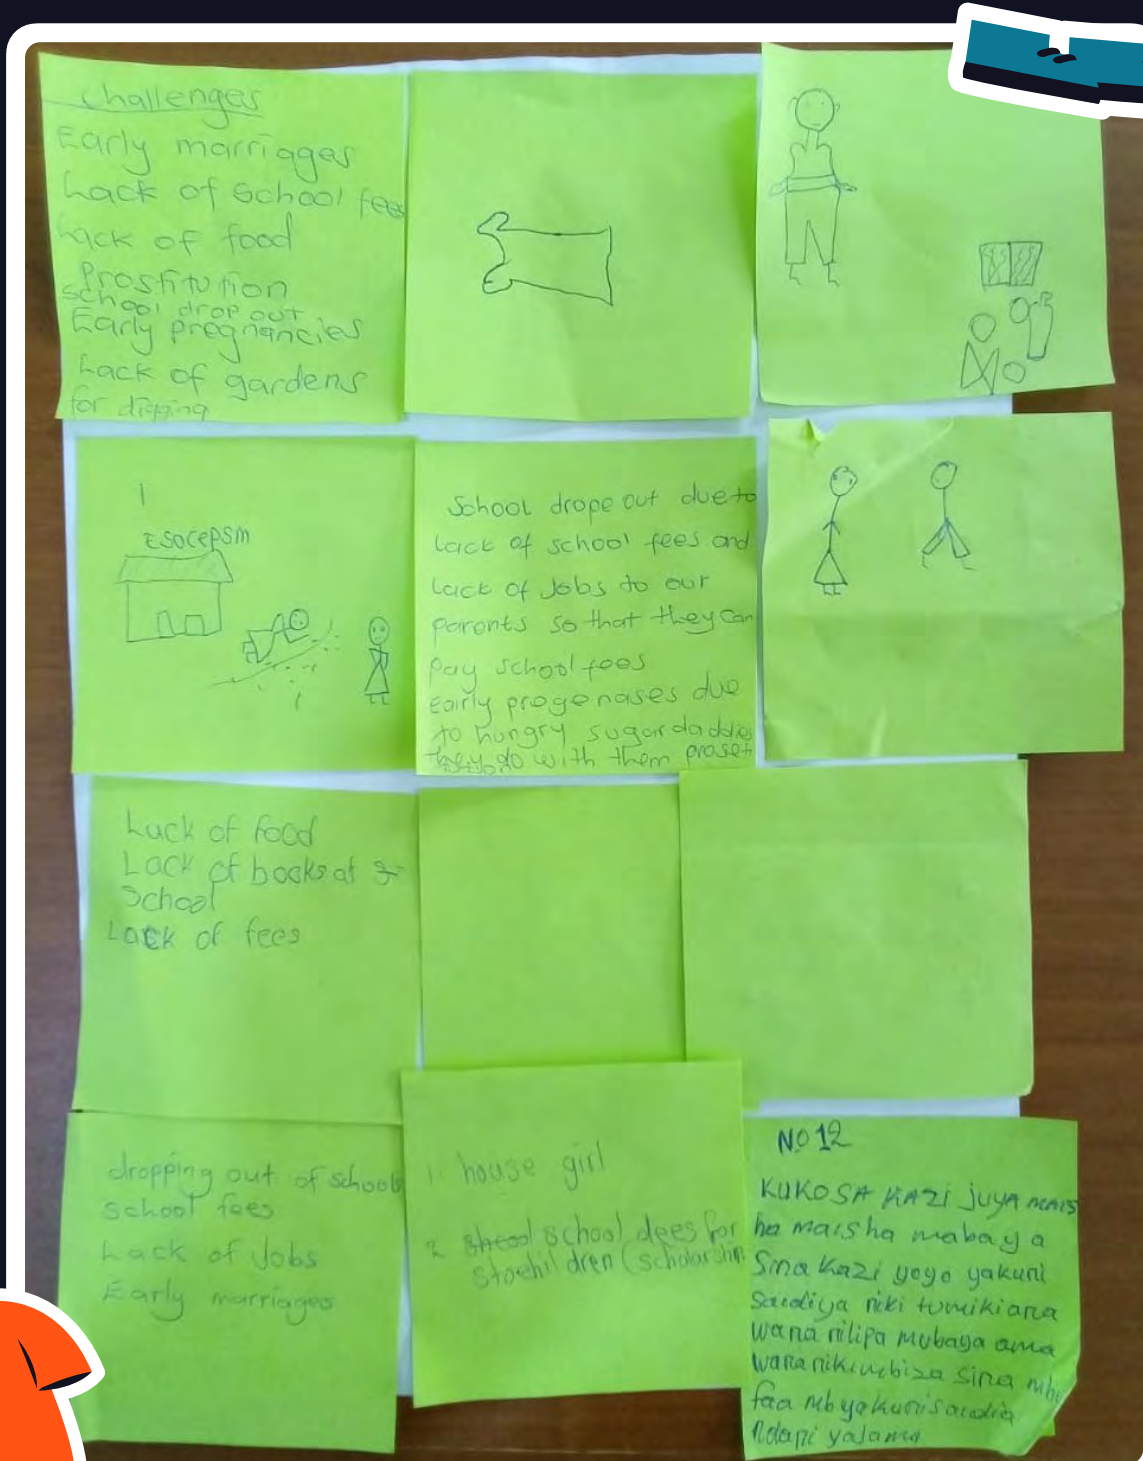 Challenges
Early marriages
Lack of School fees
Lack of food
Prostitution
school drop out
Early pregnancies
Lack of gardens
for digging
ESOCEPSM
School drope out due to
Lack of school fees and
Lack of Jobs to our
parents so that they can
pay school fees
early progenases due
to hungry sugardaddies
they go with them
Luck of food
Lack of books at
School
Lack of fees
dropping out of school
school fees
Lack of Jobs
Early marriages
1. house girl
2 school dees for
(scholarship
NO 12
KUKOSA KAZI juya mais
ha maisha mabaya
Sina kazi yoyo yakuni
Saidiya niki tumikiana
wana nilipa mubaya ama
wana sina
faa
yajama